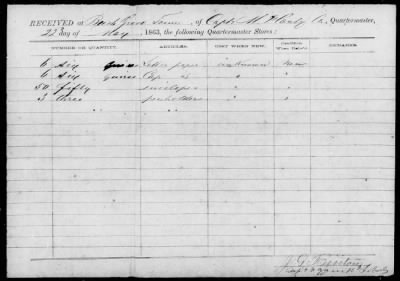 RECEIVED at Beech Grove Tenn of Capt. M. H. Quartermaster,
22d day of May, 1863, the following Quartermaster Stores:
NUMBER OR QUANTITY. ARTICLES. COST WHEN NEW. Condition When Deliv'd. REMARKS.
6 Six Quires Letter paper unknown New
6 Six quires Cap " " "
50 fifty envelopes " "
3 three penholders " "
" "